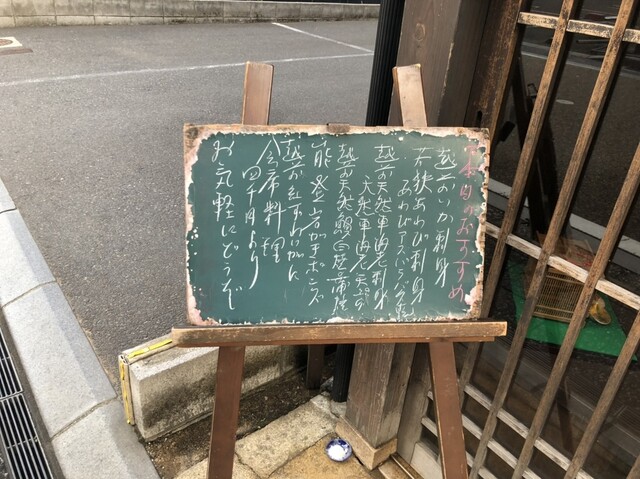 本日のおすすめ
越前いか刺身
若狭あわび刺身
あわびアスパラバター焼
越前天然車海老刺身
天然車海老天ぷら
越前天然鯛
能登岩がきポンズ
越前紅ずわいがに
会席料理
四千円より
お気軽にどうぞ